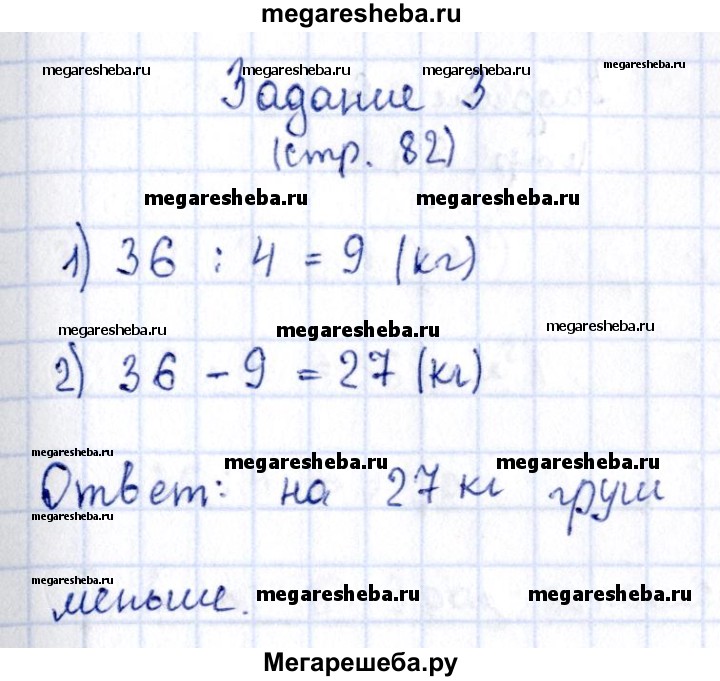 megaresheba.ru
megaresheba.ru megaresheba.ru megaresheba.ru megaresheba.ru
Задание 3
(стр. 82)
megaresheba.ru megaresheba.ru
1) 36 : 4 = 9 (кг)
megaresheba.ru megaresheba.ru megaresheba.ru
2) 36 - 9 = 27 (кг)
megaresheba.ru megaresheba.ru megaresheba.ru
Ответ: на 27 кг груш
megaresheba.ru
megaresheba.ru megaresheba.ru megaresheba.ru
меньше.
Мегарешеба.ру